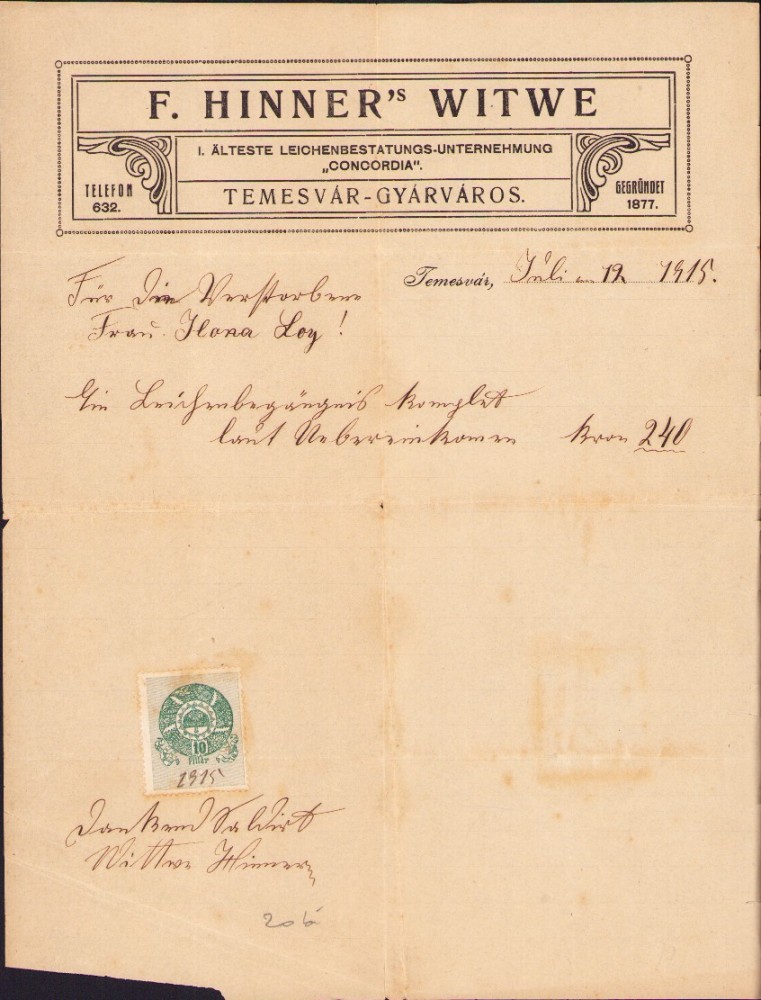 F. HINNER's WITWE
I. ÄLTESTE LEICHENBESTATUNGS-UNTERNEHMUNG
„CONCORDIA“.
TELEFON
632.
TEMESVÁR-GYÁRVÁROS.
GEGRÜNDET
1877.
Temesvár, Juli am 19 1915.
Für Die Verstorbene
Frau. Ilona Loy!
Ein Leichenbegängnis komplet
laut Uebereinkomen Kron 240
10
fillér
1915
Dankend Saldirt
Wittwe Hinner
206